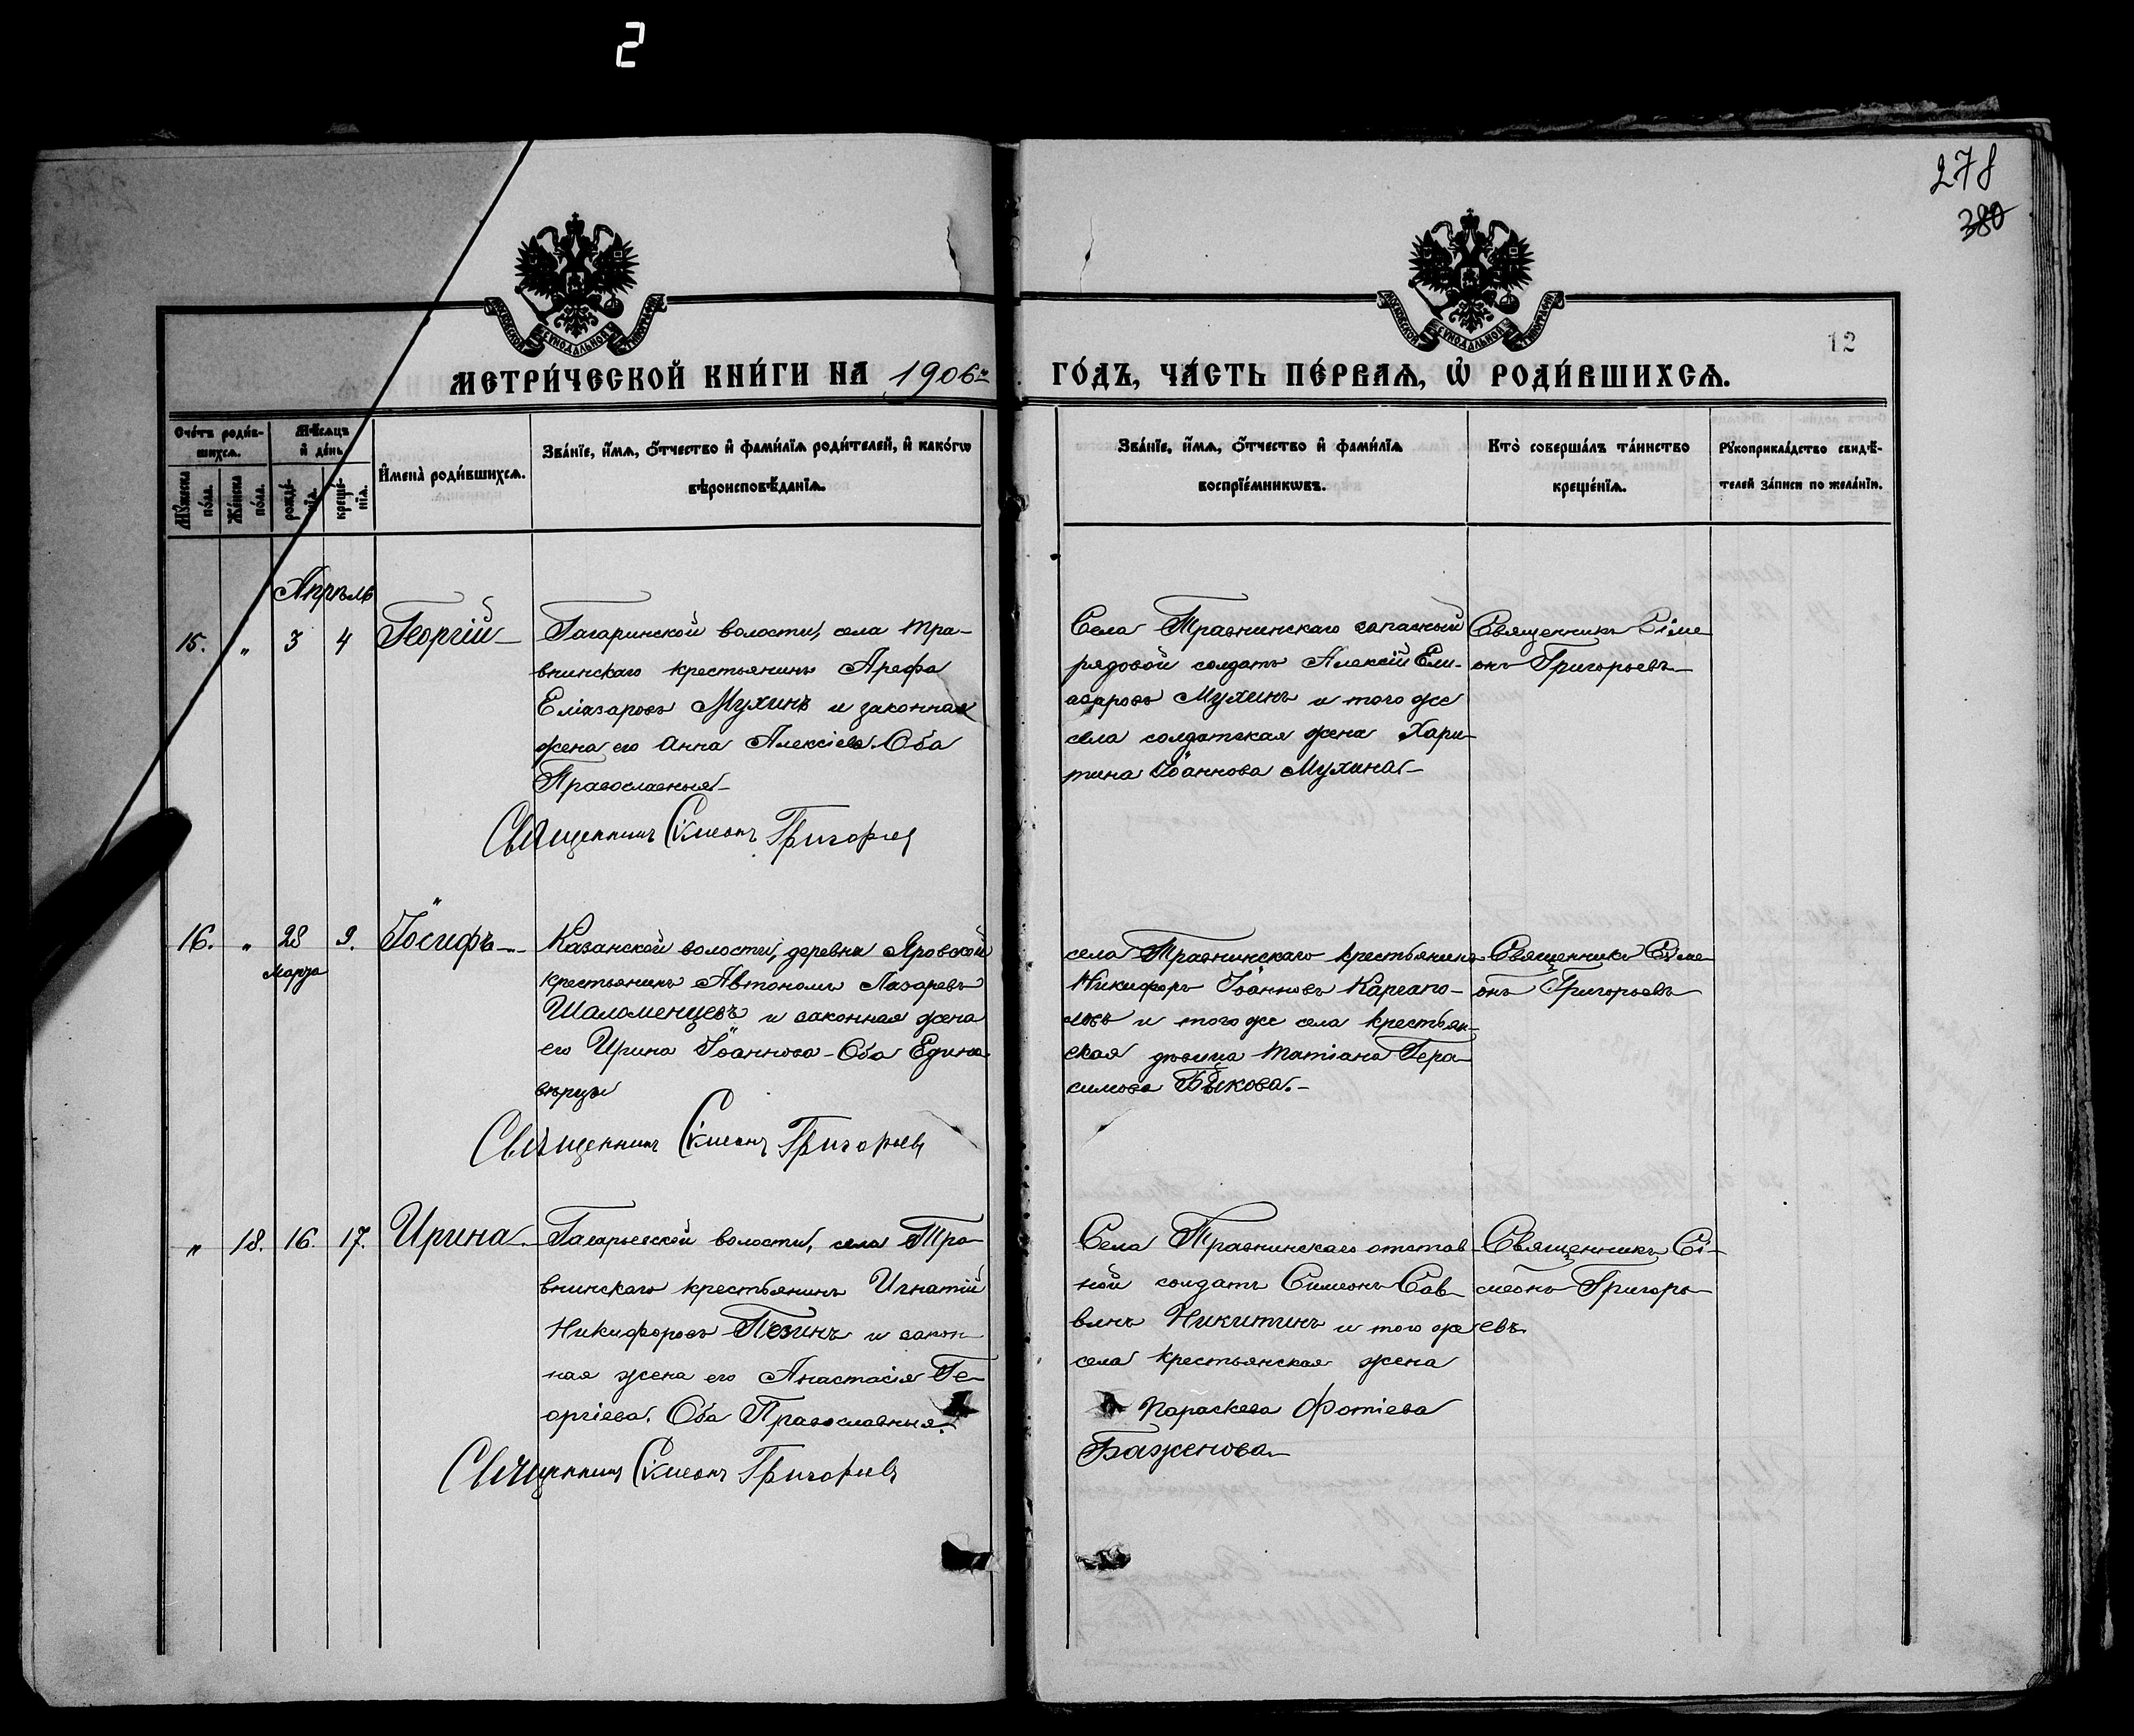 2
278
380
МОСКОВСКОЙ СѴНОДАЛЬНОЙ ТИПОГРАФІИ
МОСКОВСКОЙ СѴНОДАЛЬНОЙ ТИПОГРАФІИ
12
МЕТРИ́ЧЕСКОЙ КНИ́ГИ НА 1906й ГО́ДЪ, ЧА́СТЬ ПЕ́РВАѦ, Ѡ҆ РОДИ́ВШИХСѦ.
Сче́тъ роди́в-
шихсѧ.
Мꙋ́жеска по́ла.
Же́нска по́ла.
Мѣ́сѧцъ
и҆ де́нь
рожде́-нїѧ.
креще́-нїѧ.
И҆мена̀ роди́вшихсѧ.
Зва́нїе, и҆́мѧ, ѻ҆́тчество и҆ фами́лїѧ роди́телей, и҆ како́гѡ
вѣроисповѣ́данїѧ.
Зва́нїе, и҆́мѧ, ѻ҆́тчество и҆ фами́лїѧ
воспрїе́мникѡвъ.
Кто̀ соверша́лъ та́инство
креще́нїѧ.
Рꙋкоприкла́дство свидѣ́-
телей за́писи по жела́нїю.
Апрѣль
15. " 3 4 Георгій
Гагаринской волости, села Тра-
внинскаго крестьянинъ Арефа
Еліазаровъ Мухинъ и законная
жена его Анна Алексіева. Оба
Православныя
Священникъ Симеонъ Григорьев
Села Травнинскаго запасный
рядовой солдатъ Алексій Ели-
азаровъ Мухинъ и того же
села солдатская жена Хари-
тина Іоаннова Мухина
Священникъ Сіме-
онъ Григорьевъ
16. " 28 9. Іосифъ
Марта
Казанской волости, деревни Яровской
крестьянинъ Автономъ Лазаревъ
Шаломенцевъ и законная жена
его Ирина Іоаннова - Оба Едино-
вѣрцы
Священникъ Симеонъ Григорьевъ
села Травнинскаго крестьянинъ
Никифоръ Іоанновъ Карсапо-
ловъ и того же села крестьян-
ская дѣвица Татіана Гера-
симова Быкова.
Священникъ Сіме-
онъ Григорьевъ
" 18. 16. 17. Ирина
Гагарьевской волости, села Тра-
внинскаго крестьянинъ Игнатій
Никифоровъ Пезинъ и закон-
ная жена его Анастасія Ге-
оргіева. Оба Православныя.
Священникъ Симеонъ Григорьевъ
Села Травнинскаго отстав-
ной солдатъ Симеонъ Сав-
винъ Никитинъ и того же
села крестьянская жена
Параскева Фотіева
Баженова
Священникъ Сі-
меонъ Григорь-
евъ